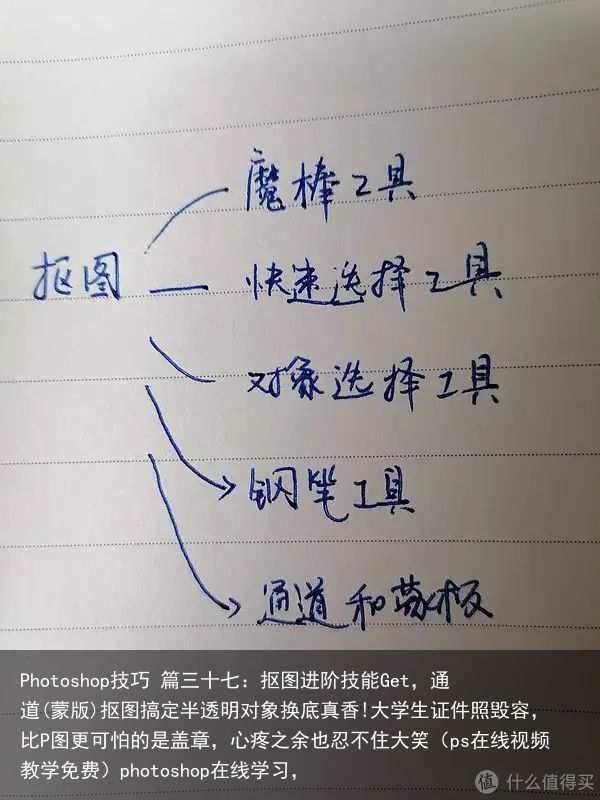 魔棒工具
抠图
快速选择工具
对象选择工具
钢笔工具
通道和蒙板
Photoshop技巧 篇三十七：抠图进阶技能Get，通
道(蒙版)抠图搞定半透明对象换底真香!大学生证件照毁容，
比P图更可怕的是盖章，心疼之余也忍不住大笑（ps在线视频
教学免费）photoshop在线学习，
值 什么值得买